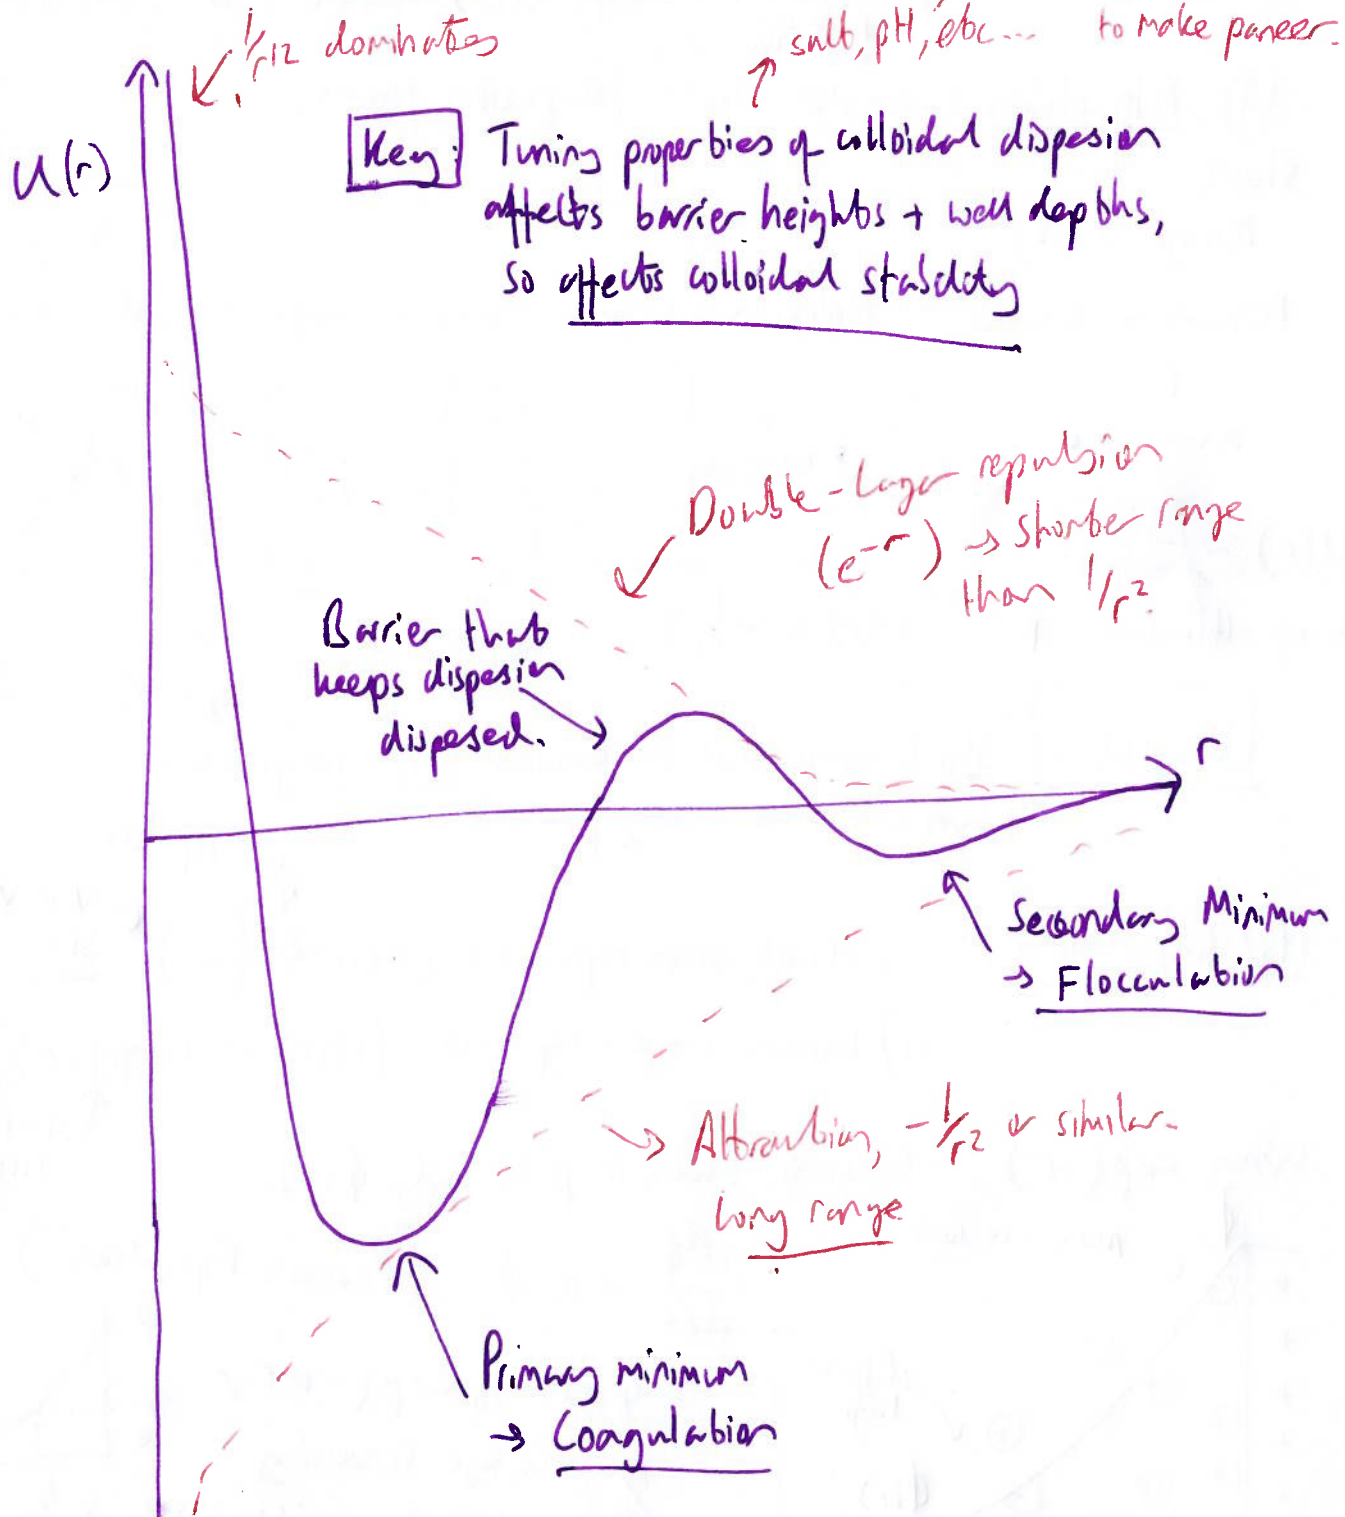 1/r12 dominates
salt, pH, etc... to make paneer.
U(r)
Key: Tuning properties of colloidal dispesion
affects barrier heights + well depths,
so affects colloidal stability
Double-Layer repulsion
(e-r) → shorter range
than 1/r2.
Barrier that
keeps dispesion
dispesed.
r
Secondary Minimum
→ Flocculation
Attraction, -1/r2 or similar.
Long range
Primary minimum
→ Coagulation